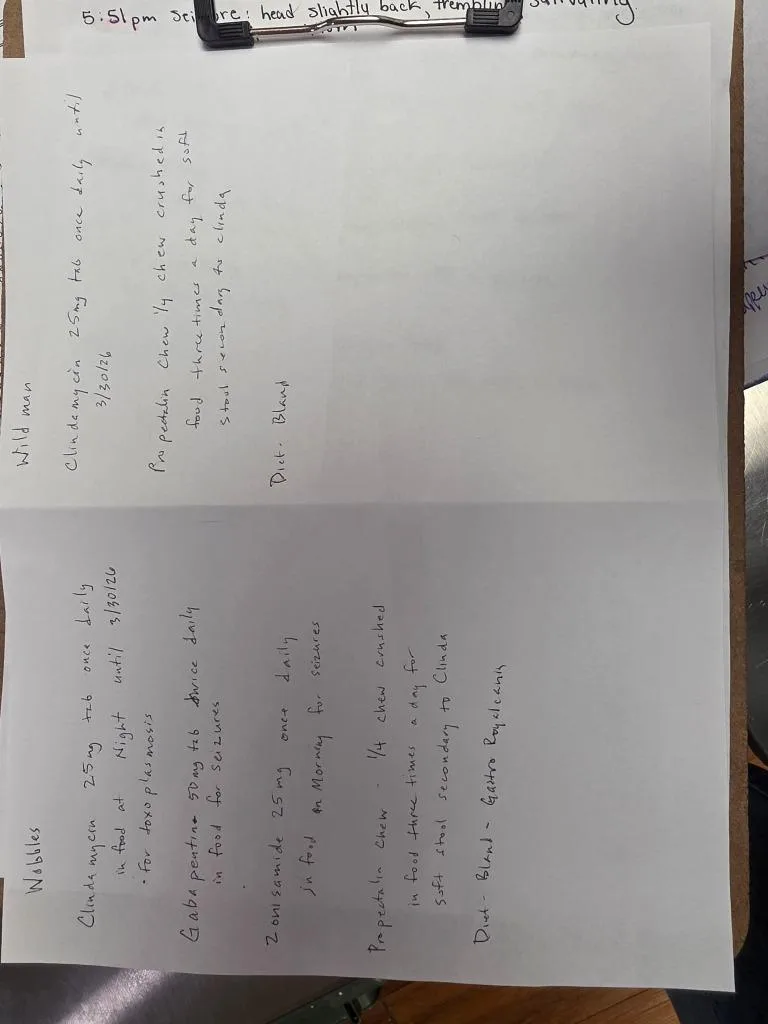 5:51pm Seizure: head slightly back, trembling salivating
Wobbles
Clindamycin 25mg tab once daily
in food at Night until 3/30/26
• For toxoplasmosis
Gabapentine 50mg tab twice daily
in food for seizures
Zonisamide 25mg once daily
in food in Morning for seizures
Propectalin Chew - 1/4 chew crushed
in food three times a day for
soft stool secondary to Clinda
Diet - Bland - Gastro Royalcanin
Wild man
Clindamycin 25mg tab once daily until
3/30/26
Propectalin Chew 1/4 chew crushed in
food three times a day for soft
stool secondary to clinda
Diet - Bland